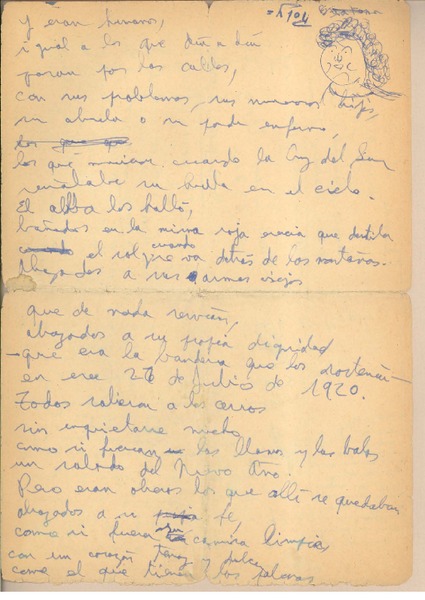 Y eran humanos,
igual a los que día a día
pasan por las calles,
con sus problemas, sus numerosos hijos
su abuela o su padre enfermo,
los que
los que murieron cuando la Cruz del Sur
señalaba su huella en el cielo.
El alba los halló,
bañados en la misma roja esencia que destila
cuando el sol se va detrás de las montañas.
cuando
Abrazados a sus armas viejas
que de nada servían,
abrazados a su propia dignidad
- que era la bandera que los sostenía -
en ese 27 de Julio de 1920.
Todos salieron a los cerros
sin inquietarse mucho
como si fueran las llamas y las balas
un saludo del Nuevo Año.
Pero eran obreros los que allí se quedaban
abrazados a su fe,
como si fuera su camisa limpia
con un corazón tenaz y dulce
como el que tienen las palomas